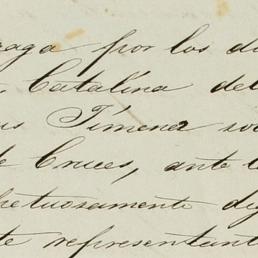 raga por los di
Catalina del
us Jimena so
de Cruces, ante l
petuosamente di
te representant